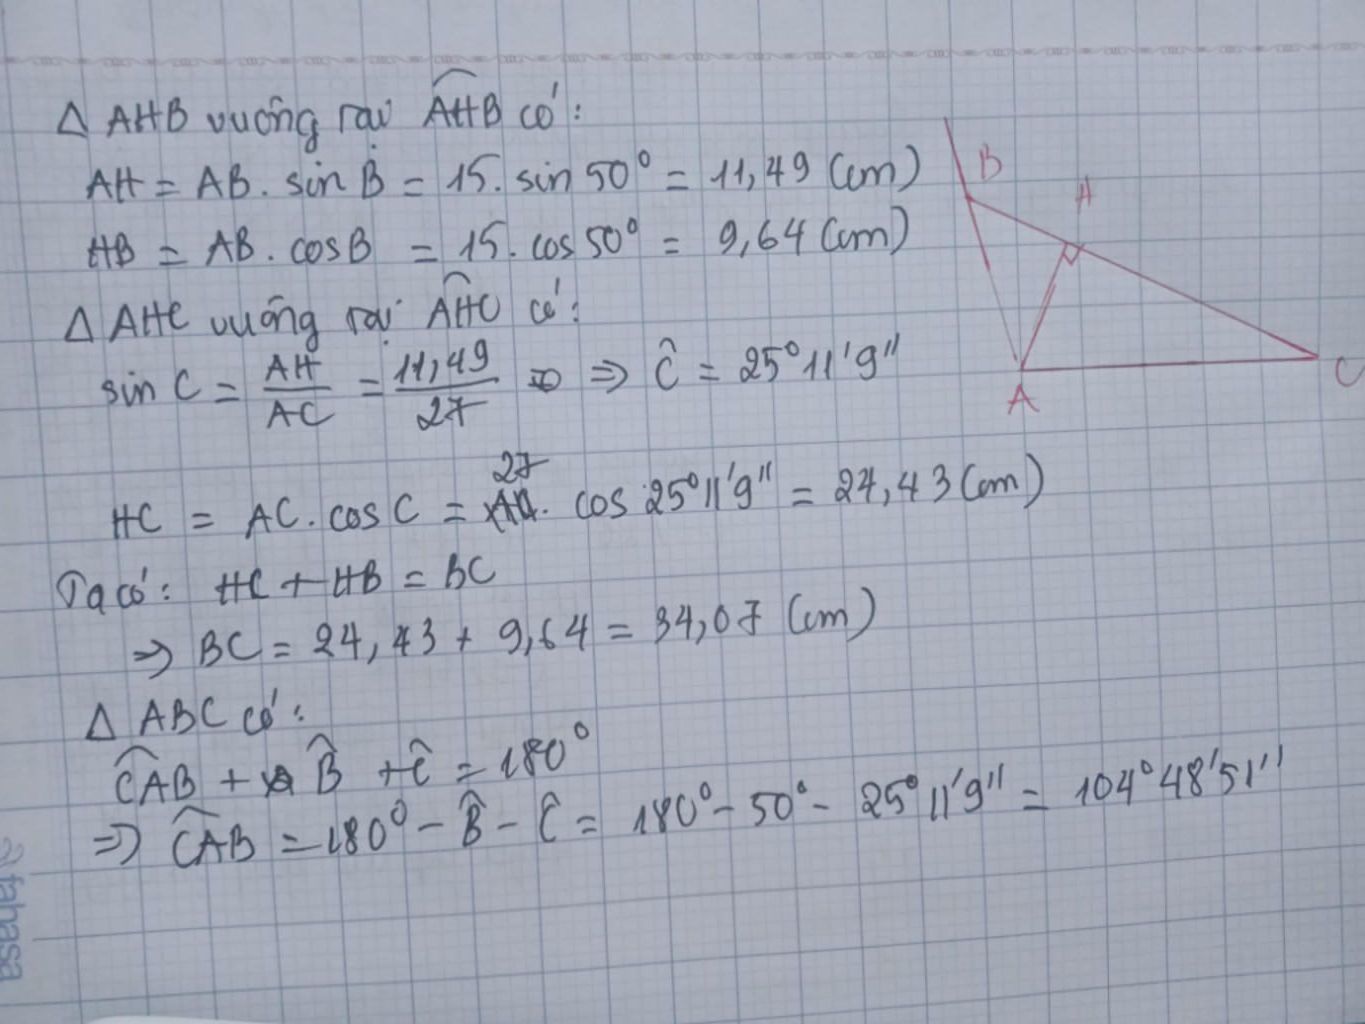 Δ AHB vuông tại AHB có:
AH = AB. sin B = 15. sin 50° = 11,49 (cm)
HB = AB. cosB = 15. cos 50° = 9,64 (cm)
Δ AHC vuông tại AHC có:
sin C = AH/AC = 11,49/27 ⇒ Ĉ = 25°11'9"
HC = AC. cos C = 27. cos 25°11'9" = 24,43 (cm)
Ta có: HC + HB = BC
⇒ BC = 24,43 + 9,64 = 34,07 (cm)
Δ ABC có:
CAB + B̂ + Ĉ = 180°
⇒ CAB = 180° - B̂ - Ĉ = 180° - 50° - 25°11'9" = 104°48'51"
B
H
A
C
fahasa